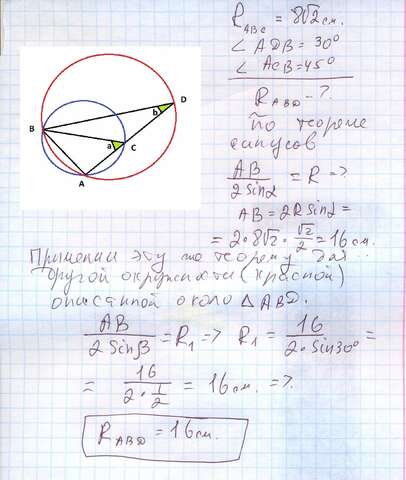 R ABC = 8√2 см.
∠ ADB = 30°
∠ ACB = 45°
R ABD - ?
По теореме
синусов
AB / 2 sin α = R => 
AB = 2R sin α =
= 2 · 8√2 · √2/2 = 16 см.
Применим эту же теорему для
другой окружности (красной)
описанной около △ ABD.
AB / 2 sin β = R₁ => R₁ = 16 / 2 · sin 30° =
= 16 / 2 · 1/2 = 16 см. =>
R ABD = 16 см.
B
D
b
a
C
A